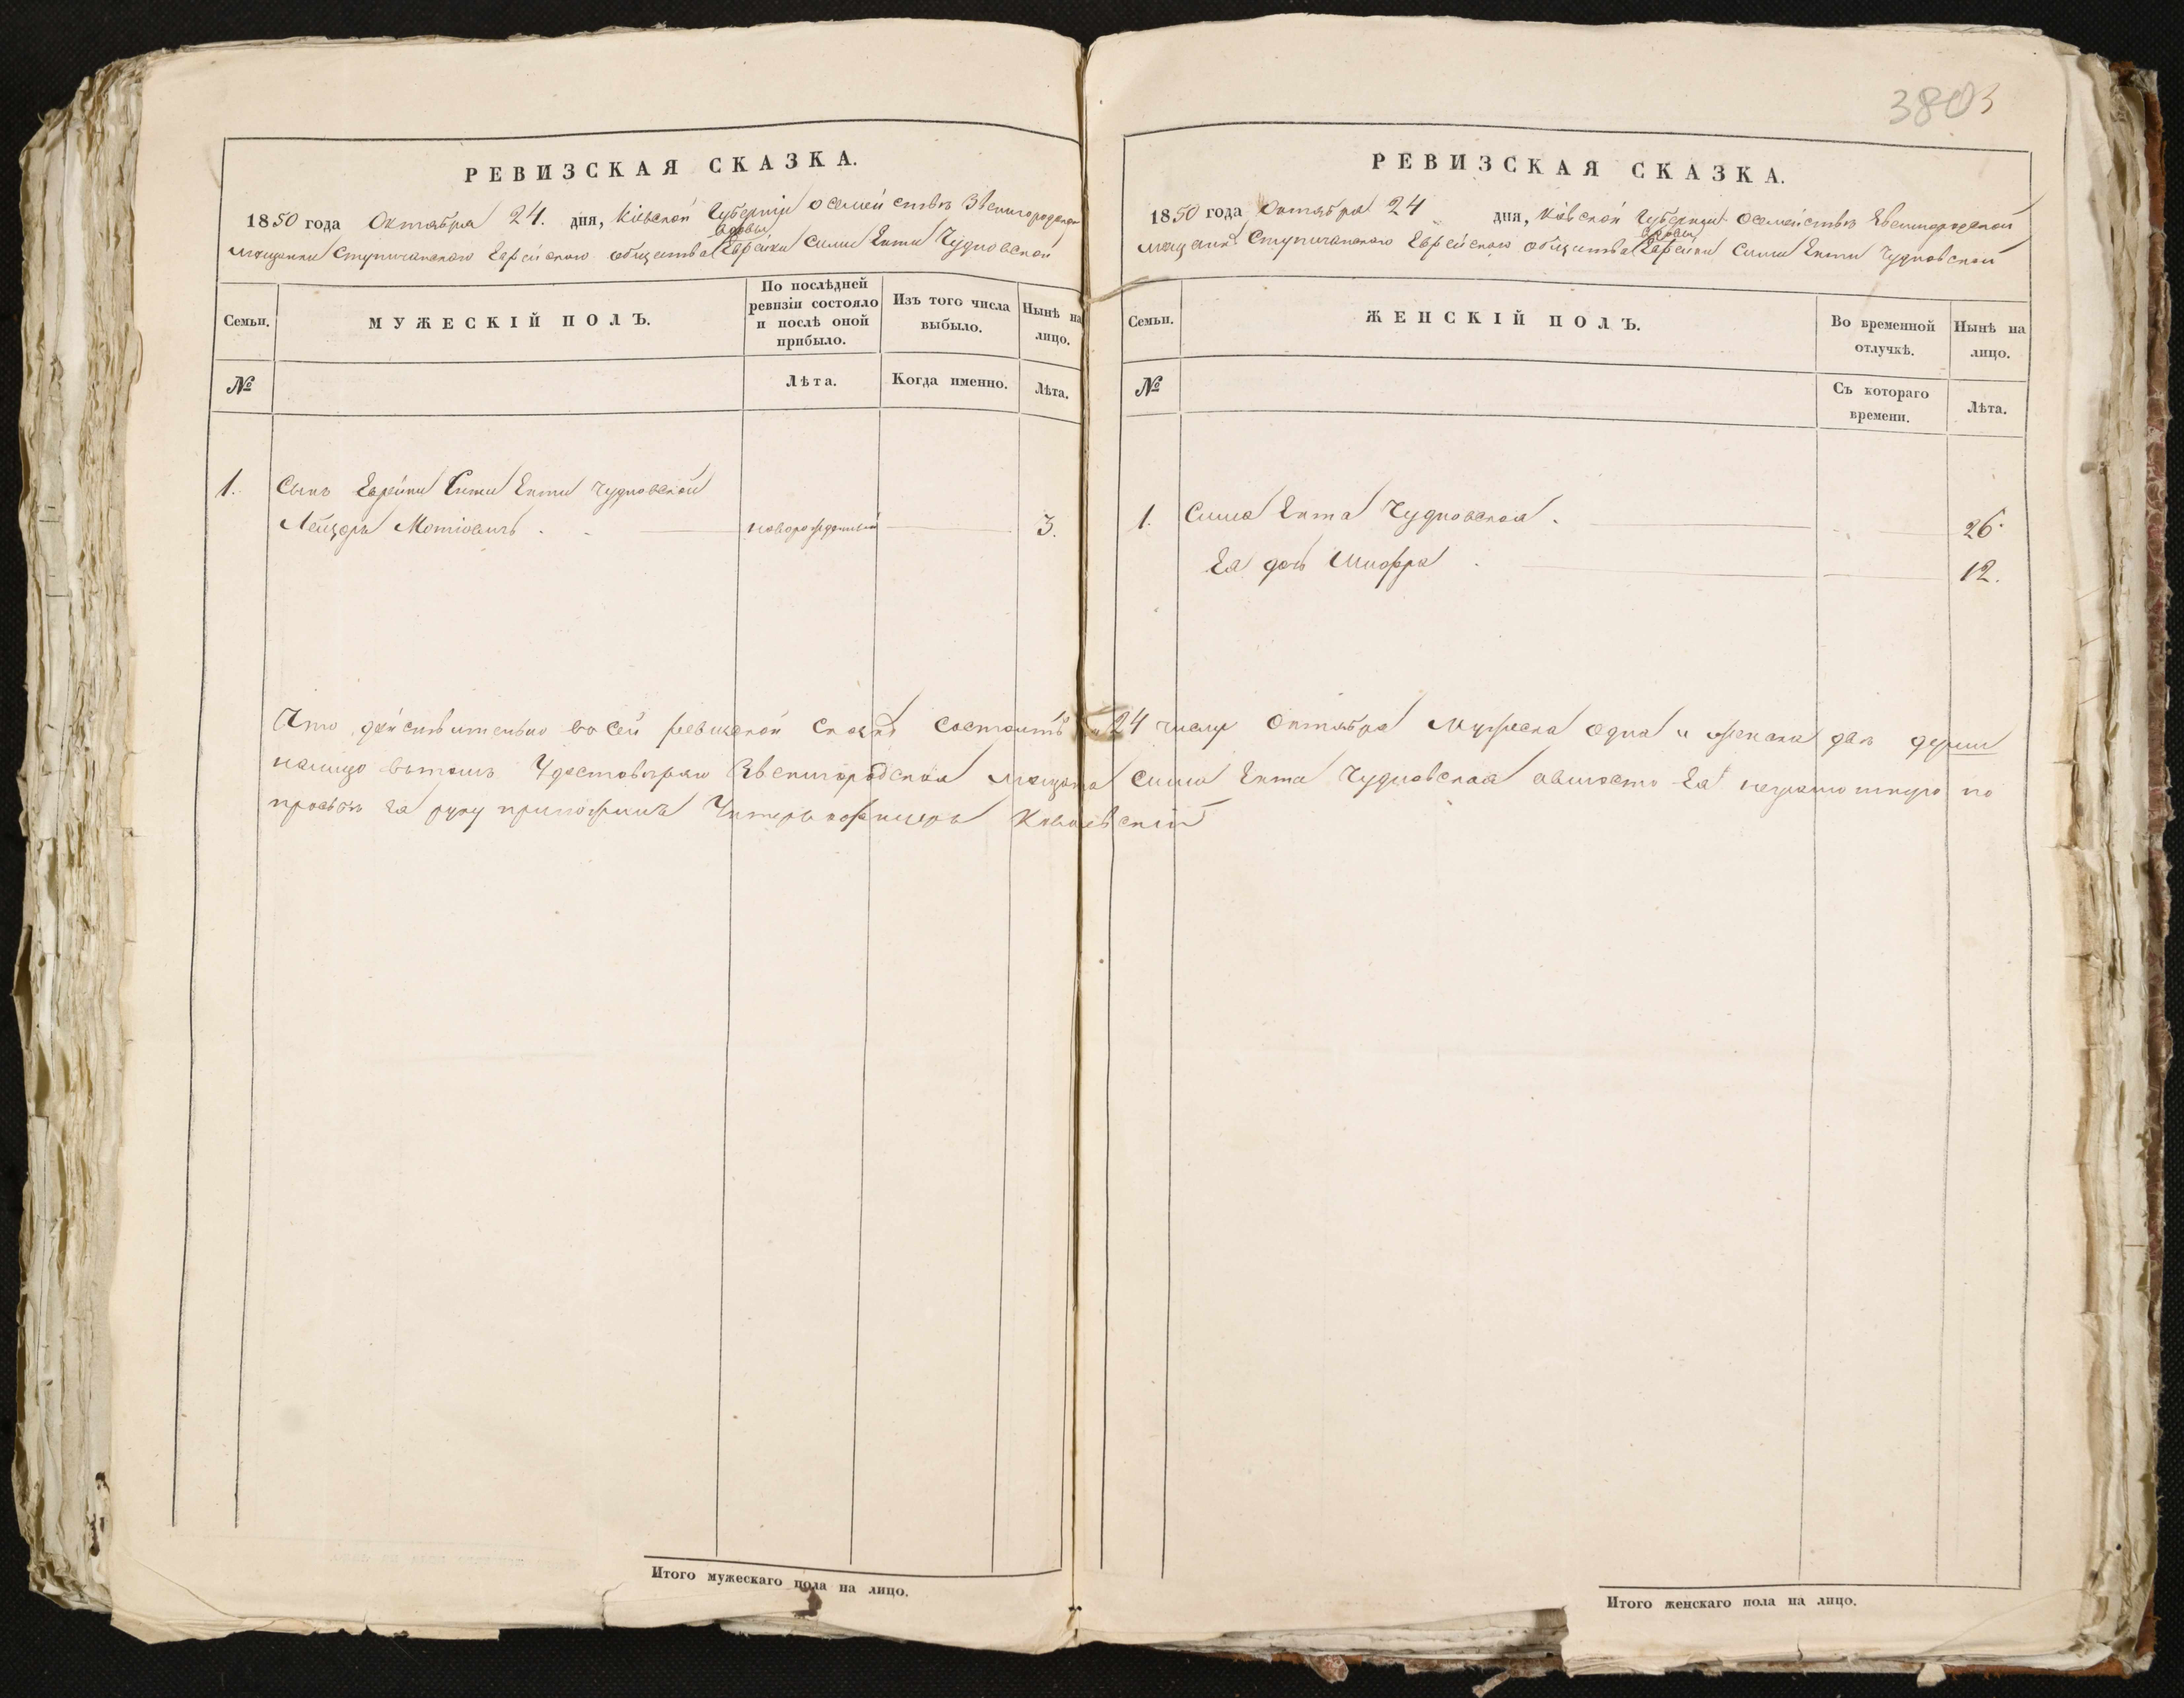 3803
РЕВИЗСКАЯ СКАЗКА.
1850 года Октября 24. дня, Кіевской Губерніи о семействѣ Звенигородской
вдовы
мещанки Ступичанскаго Еврейскаго общества Еврейки Симы Енты Чудновской
Семьи.
МУЖЕСКІЙ ПОЛЪ.
По послѣдней ревизіи состояло и послѣ оной прибыло.
Изъ того числа выбыло.
Нынѣ на лицо.
№
Лѣта.
Когда именно.
Лѣта.
1. Сынъ Еврейки Симы Енты Чудновской
Лейзоръ Мотіовичъ новорожденный 3.
РЕВИЗСКАЯ СКАЗКА.
1850 года Октября 24 дня, Кіевской Губерніи о семействѣ Звенигородской
вдовы
мещанки Ступичанскаго Еврейскаго общества Еврейки Симы Енты Чудновской
Семьи.
ЖЕНСКІЙ ПОЛЪ.
Во временной отлучкѣ.
Нынѣ на лицо.
№
Съ котораго времени.
Лѣта.
1. Сима Ента Чудновская. 26.
Еа дочь Шифра 12.
Что действительно во сей ревизской сказкѣ состоитъ 24 числу Октября Мужеска одна и женска двѣ души
налицо въ томъ Удостовѣряю Звенигородская мещанка Сима Ента Чудновская а вместо Еа неграмотную по
просьбѣ Еа руку приложилъ Унтеръ офицеръ
Итого мужескаго пола на лицо.
Итого женскаго пола на лицо.